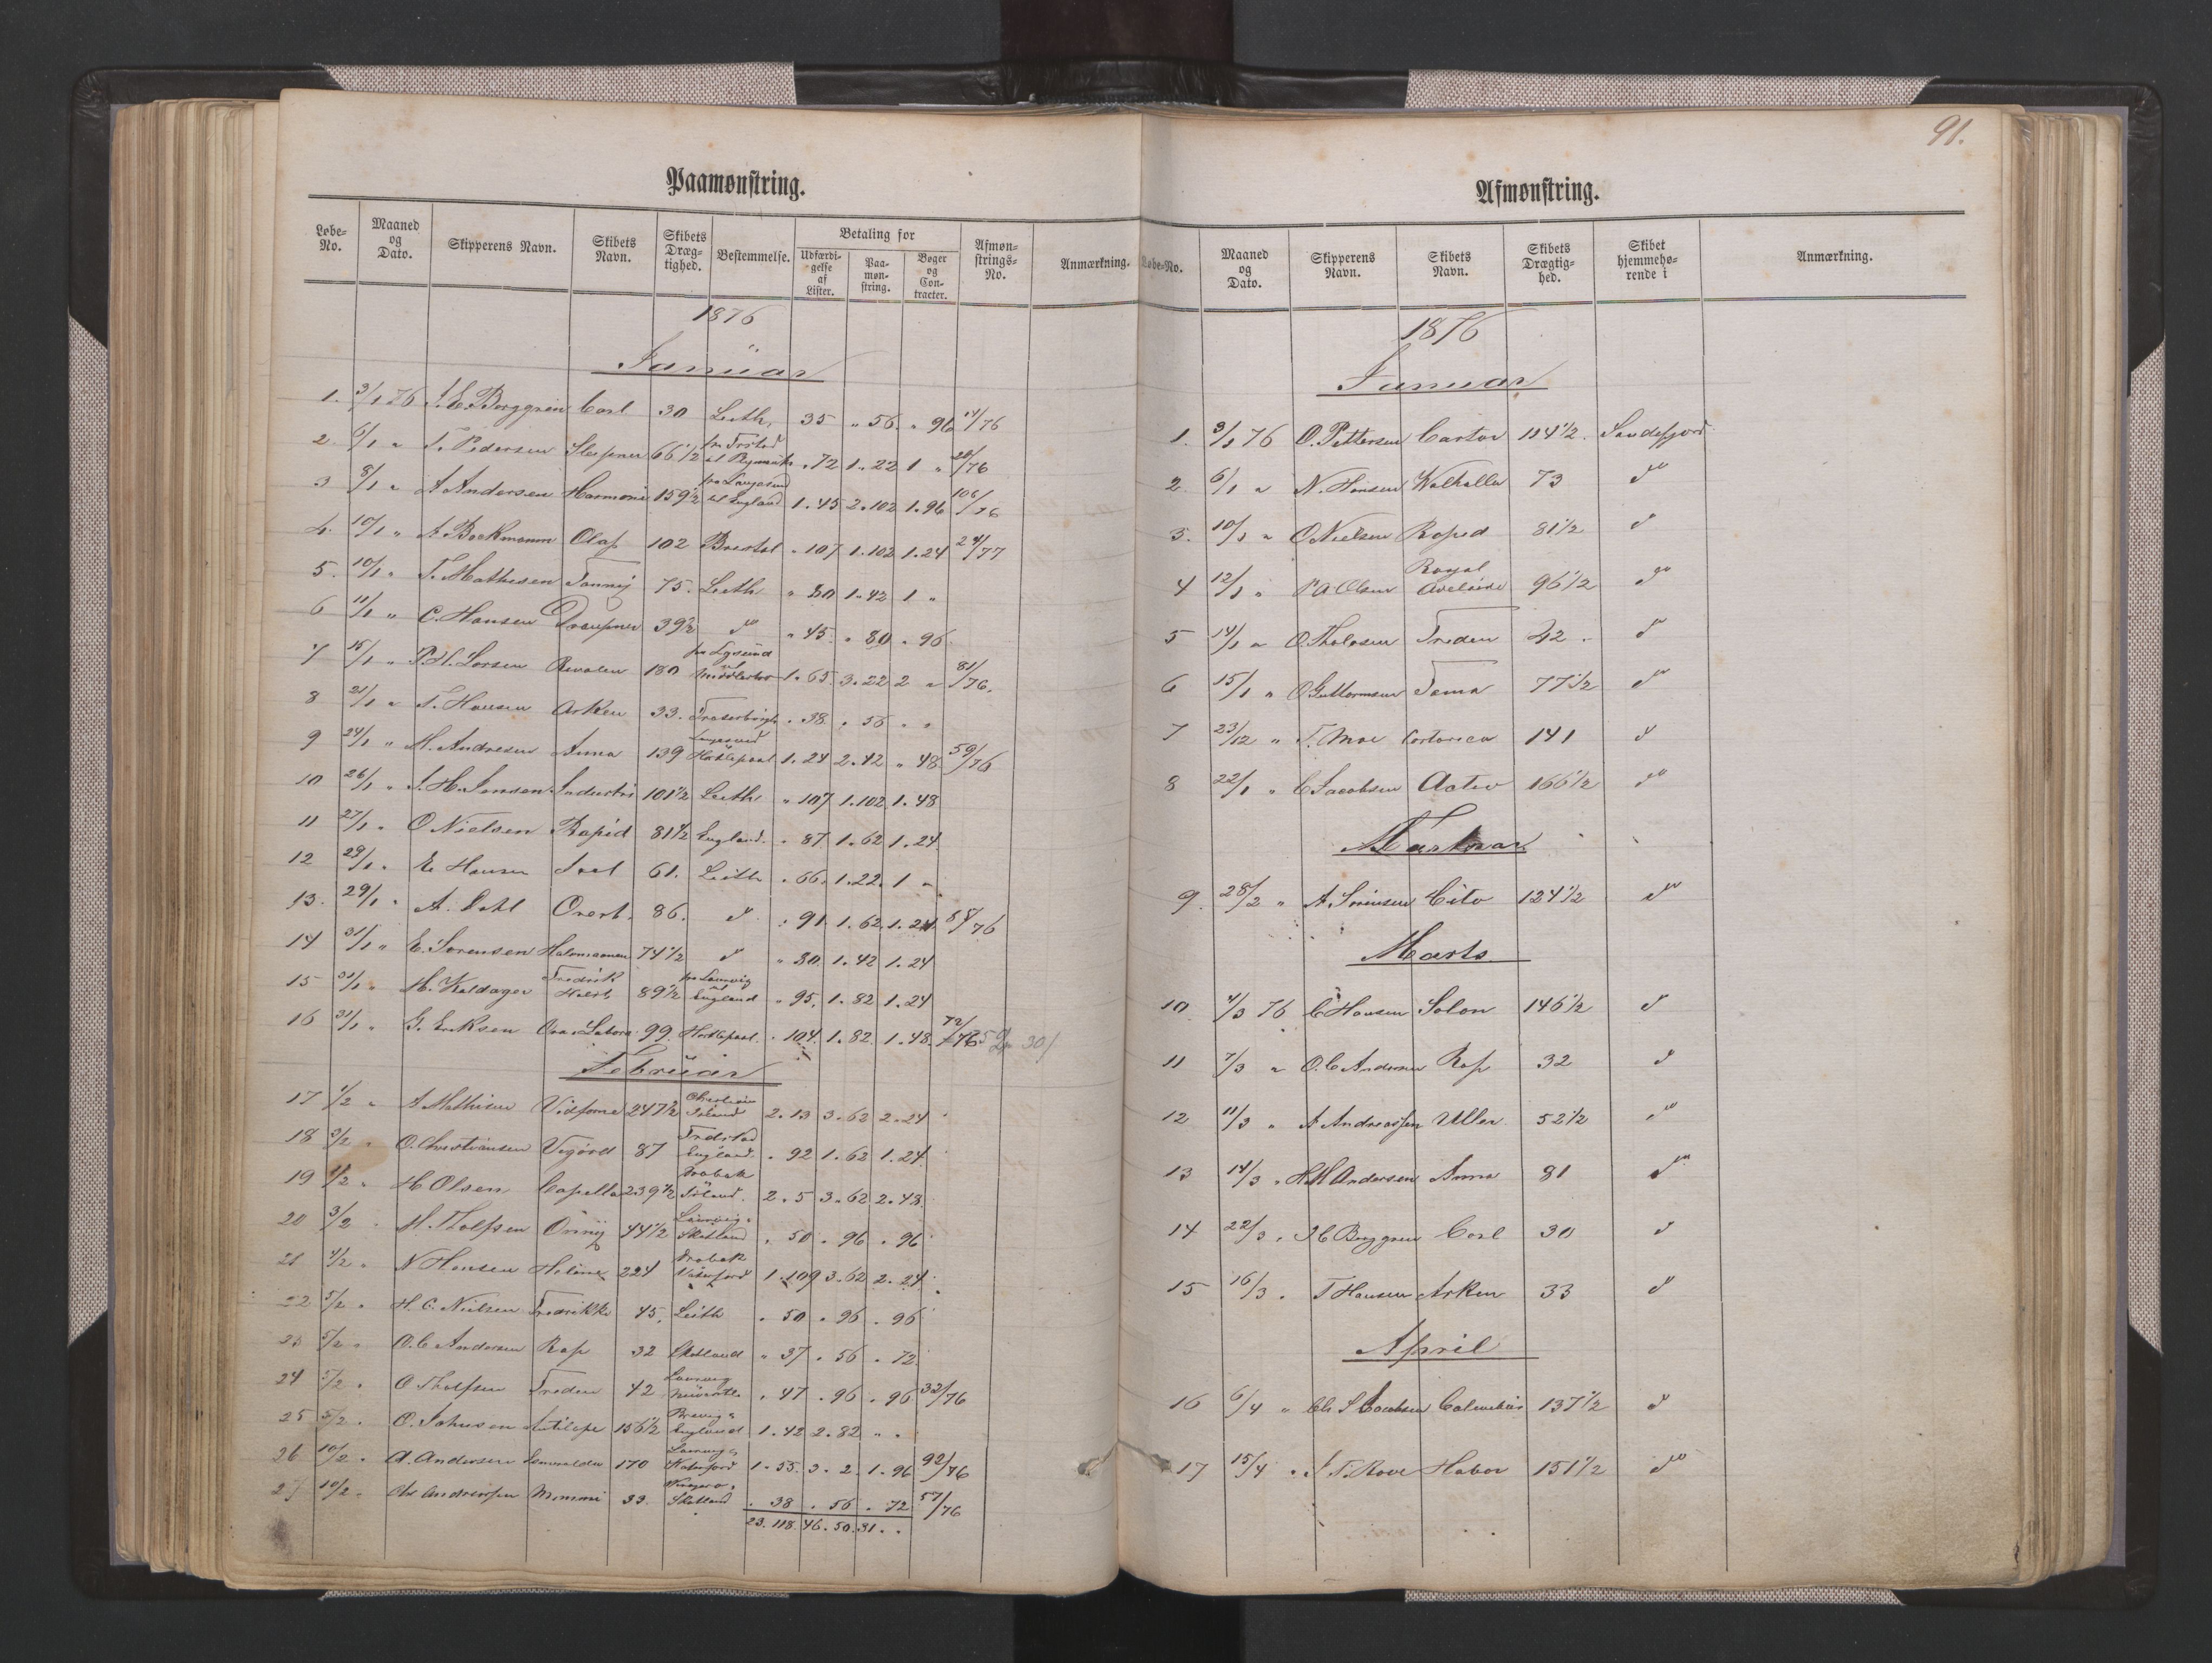 91.
Paamønstring.
Løbe-No. Maaned og Dato. Skipperens Navn. Skibets Navn. Skibets Dræg-tighed. Bestemmelse. Betaling for Udfærdi-gelse af Lister. Paa-møn-string. Bøger og Con-tracter. Afmøn-strings-No. Anmærkning.
1876
Januar
1. 3/1 76 J. E. Berggren Carl 30 Leith, 35 " 56. " 96 14/76
2. 6/1 " T. Pedersen Sleipner 66 1/2 " 72 1. 22 1 "
3 8/1 " A Andersen Harmoni 159 1/2 fra Langesund til England 1. 45 2. 102 1. 96 106/76
4. 10/1 " A Backmann Olaf 102 Bristol " 107 1. 102 1. 24 24/77
5. 10/1 " T. Mathisen Fanny 75. Leith " 80 1. 42 1 "
6 11/1 " C. Hansen Draupner 39 1/2 do " 45. " 80 " 96
7 15/1 " P. H. Larsen 180 1. 65. 3. 22 2 " 81/76.
8 21/1 " T. Hansen Arken 33. " 38. " 56 " "
9 24/1 " M. Andresen Anna 139 1. 24 2. 42 " 48 59/76
10 26/1 " J. H. Jensen Industri 101 1/2 Leith " 107 1. 102 1. 48
11 27/1 " O Nielsen Rapid 81 1/2 England. " 87 1. 62 1. 24
12 29/1 " E Hansen 61. Leith " 66. 1. 22. 1 "
13. 29/1 " A. Dahl 86. do " 91. 1. 62. 1. 24
14 31/1 " E. Sørensen 74 1/2 do " 80 1. 42 1. 24
15 31/1 " M. Kaldager Fredrik 89 1/2 England " 95. 1. 82 1. 24
16 31/1 " G. Eriksen Ora et Labora 99. " 104. 1. 82. 1. 48. 72/76
Februar
17 1/2 " A Mathisen 247 1/2 Christiania Island 2. 13 3. 62 2. 24
18 3/2 " O. Christiansen 87 Fredstad England. " 92 1. 62 1. 24
19 " H Olsen Capella 239 1/2 Drøbak 2. 5 3. 62 2. 48
20 3/2 " 44 1/2 Skotland " 50 " 96 " 96
21 4/2 " N Hansen Helene 224 Drøbak 1. 109 3. 62 2. 24
22 5/2 " H. C. Nielsen Fredrikke 45. Leith " 50 " 96 " 96
23 5/2 " O. C Andersen Rap 32 Skotland " 37 " 56 " 72
24 5/2 " O Tholfsen Freden 42 Laurvig " 47 " 96 " 96 32/76
25 5/2 " O. Johnsen Antilope 156 1/2 England 1. 42 2. 82 " "
26 10/2 " A. Andersen Esmeralda 170 1. 55. 3. 2. 1. 96 92/76
27 10/2 " Chr Andreassen 33. Skotland " 38 " 56 " 72 57/76
23. 118. 46. 50. 31. "
Afmønstring.
Løbe-No. Maaned og Dato. Skipperens Navn. Skibets Navn. Skibets Drægtig-hed. Skibet hjemmehø-rende i Anmærkning.
1876
Januar
1. 3/1 76 O. Pettersen Castor 114 1/2. Sandefjord
2. 6/1 " N. Hansen Walhalla 73 do
3. 10/1 " O Nielsen Rapid 81 1/2 do
4 12/1 " P A Olsen Royal Adelaide 96 1/2 do
5 14/1 " O. Tholfsen Freden 42 " do
6 15/1 " O Guttormsen 77 1/2 do
7 23/12 " T. Moe 141 do
8 22/1 " C Jacobsen Activ 166 1/2 do
Februar
9. 28/2 " A. Sørensen Cito 124 1/2 do
Marts
10 4/3 76 C Hansen Solon 146 1/2 do
11 7/3 " O. C Andersen Rap 32 do
12 11/3 " A Andreassen Uller 52 1/2 do
13 14/3 " H M Andersen Anna 81 do
14 22/3 " J E Berggren Carl 30 do
15 16/3 " T Hansen Arken 33 do
April
16 6/4 " Jacobsen Columbus 137 1/2 do
17 15/4 " 151 1/2 do